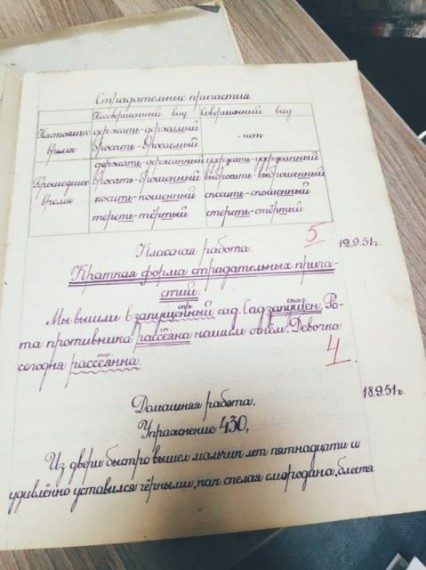 Страдательные причастия
Несовершенный вид Совершенный вид
Настоящее держать-держимый
время бросать-бросаемый - нет
держать-держанный удержать-удержанный
Прошедшее бросать-брошенный выбросить-выброшенный
время косить-кошенный скосить-скошенный
тереть-тёртый стереть-стёртый
5
Классная работа 12.9.51г.
Краткая форма страдательных прича-
стий.
Мы вышли в запущенный сад. Сад запущен. Ро-
та противника рассеяна нашим огнём. Девочка
сегодня рассеянна.
4.
Домашняя работа. 18.9.51г.
Упражнение 430,
Из двери быстро вышел мальчик лет пятнадцати и
удивлённо уставился чёрными, как спелая смородина, блестя